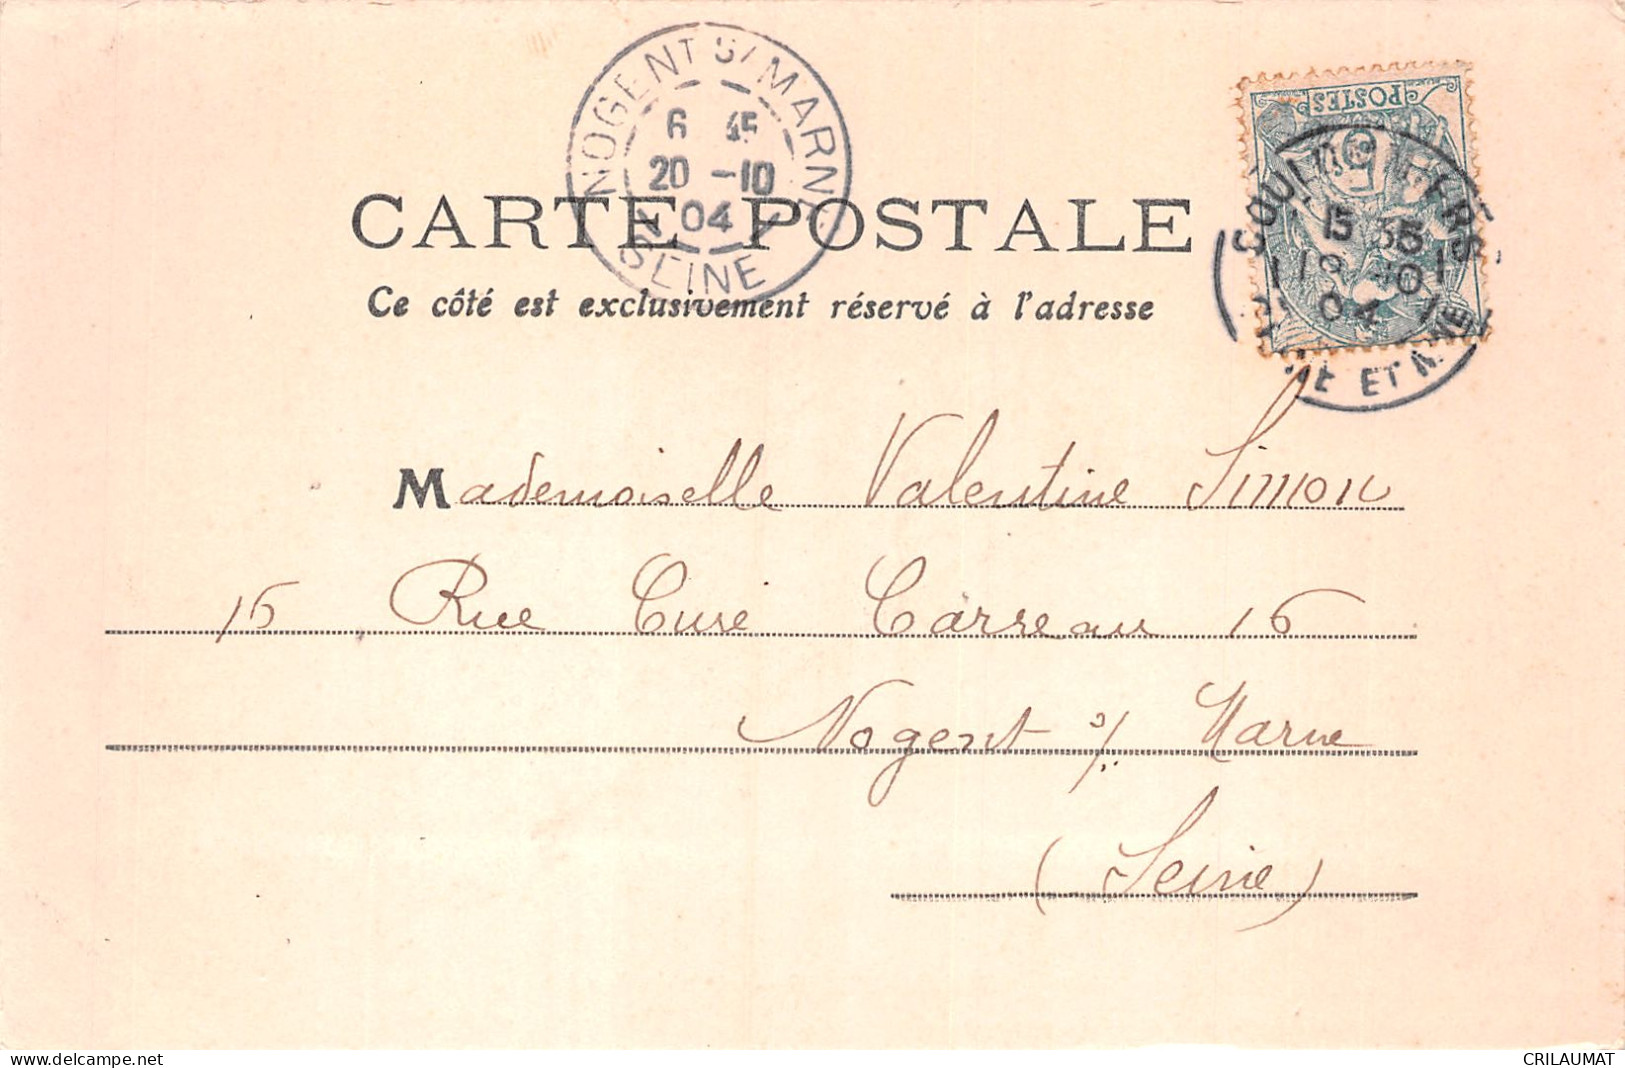 NOGENT S/ MARNE
6 45
20 -10
04
SEINE
POSTES
5
COULOMMIERS
15 35
19 -10
04
SEINE ET MARNE
CARTE POSTALE
Ce côté est exclusivement réservé à l'adresse
Mademoiselle Valentine Simon
16 Rue Curé Carreau 16
Nogent s/ Marne
(Seine)
www.delcampe.net
CRILAUMAT